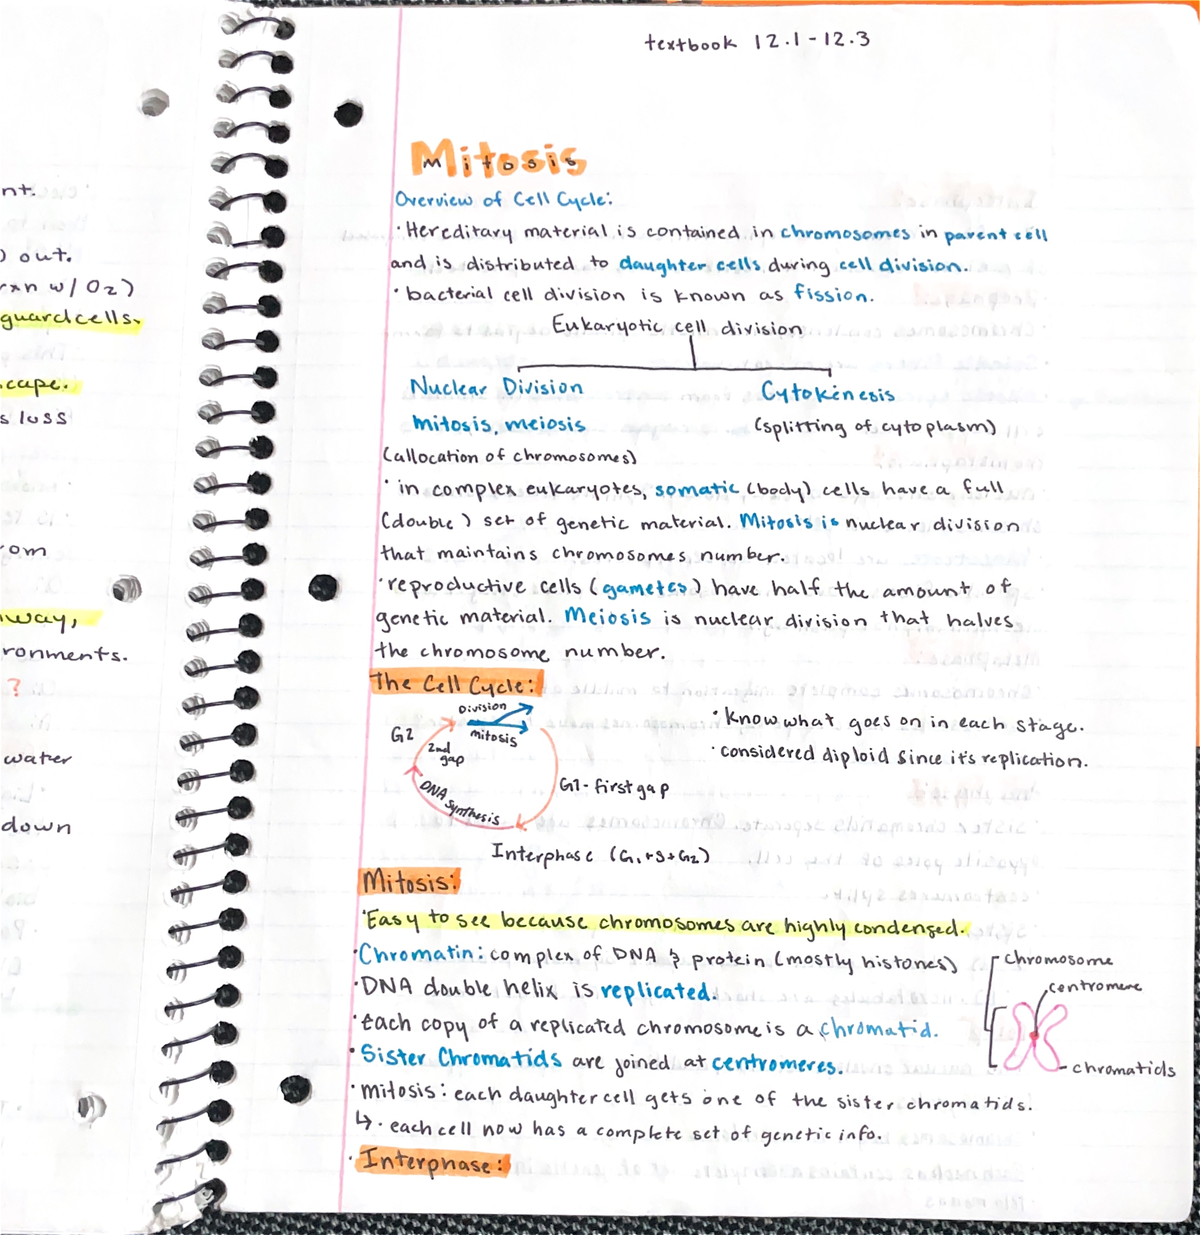 textbook 12.1-12.3
Mitosis
Overview of Cell Cycle:
· Hereditary material is contained in chromosomes in parent cell
and is distributed to daughter cells during cell division.
· bacterial cell division is known as fission.
Eukaryotic cell division
Nuclear Division
Cytokenesis
mitosis, meiosis
(splitting of cytoplasm)
(allocation of chromosomes)
· in complex eukaryotes, somatic (body) cells have a full
(double) set of genetic material. Mitosis is nuclear division
that maintains chromosomes number.
· reproductive cells (gametes) have half the amount of
genetic material. Meiosis is nuclear division that halves
the chromosome number.
The Cell Cycle:
Division
mitosis
G2
2nd
gap
DNA synthesis
G1 - first gap
Interphase (G1+S+G2)
· Know what goes on in each stage.
· considered diploid since it's replication.
Mitosis:
· Easy to see because chromosomes are highly condensed.
· Chromatin: complex of DNA & protein (mostly histones)
· DNA double helix is replicated.
· each copy of a replicated chromosome is a chromatid.
· Sister Chromatids are joined at centromeres.
chromosome
centromere
chromatids
· mitosis: each daughter cell gets one of the sister chromatids.
↳ · each cell now has a complete set of genetic info.
· Interphase:
nt.
out.
rxn w/ O2)
guard cells.
cape.
s loss
rom
way,
ronments.
?
water
down